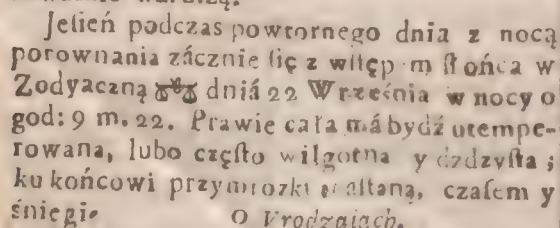 Jeſień podczas powtornego dnia z nocą
porownania zácznie ſię z wſtęp m ſłońca w
Zodyaczną ♎ dniá 22 Wrzeſnia w nocy o
god: 9 m. 22. Prawie cała má bydź utempe-
rowana, lubo częſto wilgotna y dzdzyſta ;
ku końcowi przymrozki naſtaną, czaſem y
śniegi.
O Vrodzaiach.